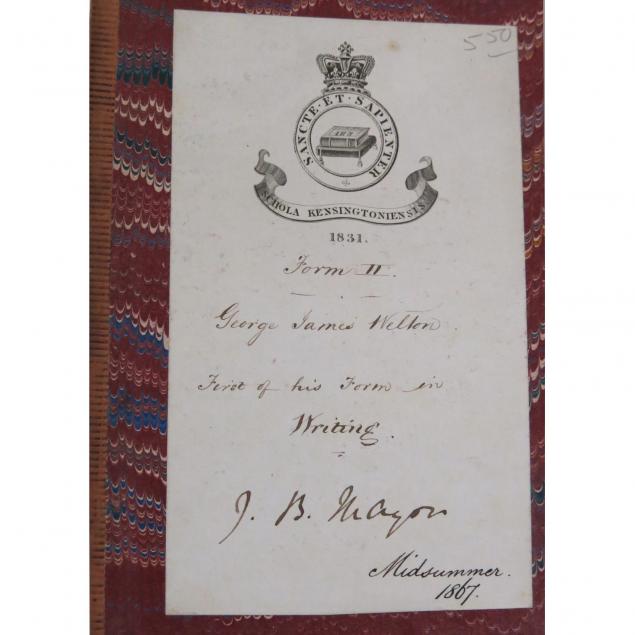 5 50
SANCTE · ET · SAPIENTER
SCHOLA KENSINGTONIENSIS
1831.
Form II.
George James Welton
First of his Form in
Writing.
J. B. Mayor
Midsummer.
1867.